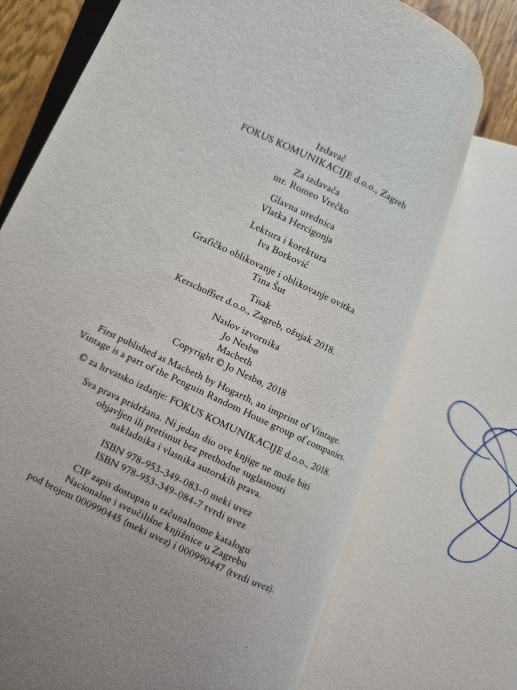 Izdavač
FOKUS KOMUNIKACIJE d.o.o., Zagreb
Za izdavača
mr. Romeo Vrečko
Glavna urednica
Vlatka Hercigonja
Lektura i korektura
Iva Borković
Grafičko oblikovanje i oblikovanje ovitka
Tina Šut
Tisak
Kerschoffset d.o.o., Zagreb, ožujak 2018.
Naslov izvornika
Jo Nesbø
Macbeth
Copyright © Jo Nesbø, 2018
First published as Macbeth by Hogarth, an imprint of Vintage.
Vintage is a part of the Penguin Random House group of companies.
© za hrvatsko izdanje: FOKUS KOMUNIKACIJE d.o.o., 2018.
Sva prava pridržana. Ni jedan dio ove knjige ne može biti
objavljen ili pretisnut bez prethodne suglasnosti
nakladnika i vlasnika autorskih prava.
ISBN 978-953-349-083-0 meki uvez
ISBN 978-953-349-084-7 tvrdi uvez
CIP zapis dostupan u računalnome katalogu
Nacionalne i sveučilišne knjižnice u Zagrebu
pod brojem 000990445 (meki uvez) i 000990447 (tvrdi uvez).